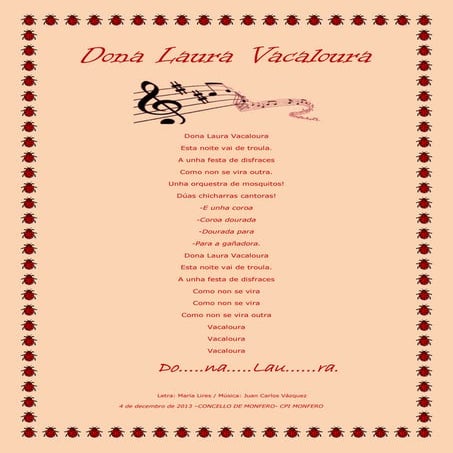 Dona Laura Vacaloura
Dona Laura Vacaloura
Esta noite vai de troula.
A unha festa de disfraces
Como non se vira outra.
Unha orquestra de mosquitos!
Dúas chicharras cantoras!
-E unha coroa
-Coroa dourada
-Dourada para
-Para a gañadora.
Dona Laura Vacaloura
Esta noite vai de troula.
A unha festa de disfraces
Como non se vira
Como non se vira
Como non se vira outra
Vacaloura
Vacaloura
Vacaloura
Do.....na.....Lau......ra.
Letra: María Lires / Música: Juan Carlos Vázquez
4 de decembro de 2013 -CONCELLO DE MONFERO- CPI MONFERO